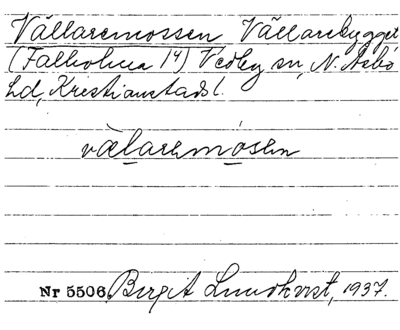 Vällaremossen Vällarebygget
(Falholma 14) Vedby sn, N. Åsbo
hd, Kristianstads l.
välaremosen
Nr 5506 Birgit Lundkvist, 1937.